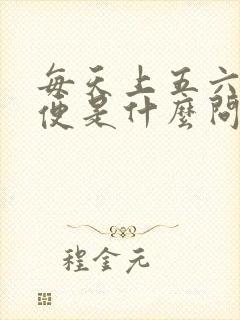 每天上五六
便是什麼問
程金元